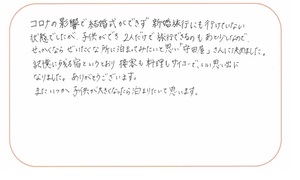 コロナの影響で結婚式ができず新婚旅行にも行けていない
状態でしたが、子供ができ2人だけで旅行できるのもあと少しなので、
せっかくならぜいたくな所に泊まってみたいと思い「守田屋」さんに決めました。
記憶に残る宿というとおり接客も料理もサイコーで、いい思い出に
なりました。ありがとうございます。
また いつか 子供が大きくなったら泊まりたいと思います。